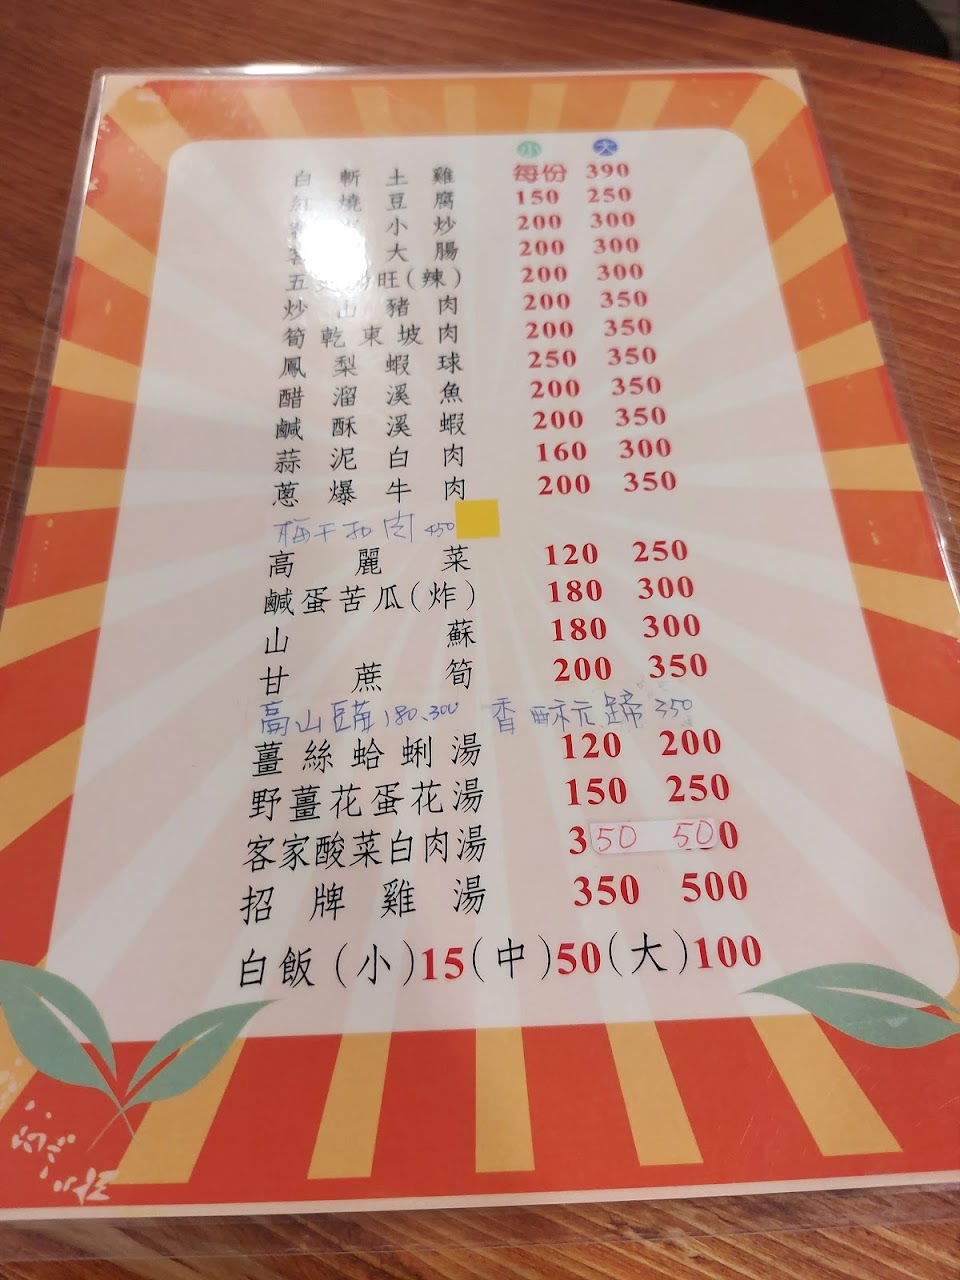 小 大
白斬土雞 每份 390
紅燒豆腐 150 250
小炒 200 300
大腸 200 300
五 旺(辣) 200 300
炒山豬肉 200 350
筍乾東坡肉 200 350
鳳梨蝦球 250 350
醋溜溪魚 200 350
鹹酥溪蝦 200 350
蒜泥白肉 160 300
蔥爆牛肉 200 350
梅干扣肉 450
高麗菜 120 250
鹹蛋苦瓜(炸) 180 300
山蘇 180 300
甘蔗筍 200 350
高山 180、300 香酥元蹄 350
薑絲蛤蜊湯 120 200
野薑花蛋花湯 150 250
客家酸菜白肉湯 350 500
招牌雞湯 350 500
白飯(小)15(中)50(大)100